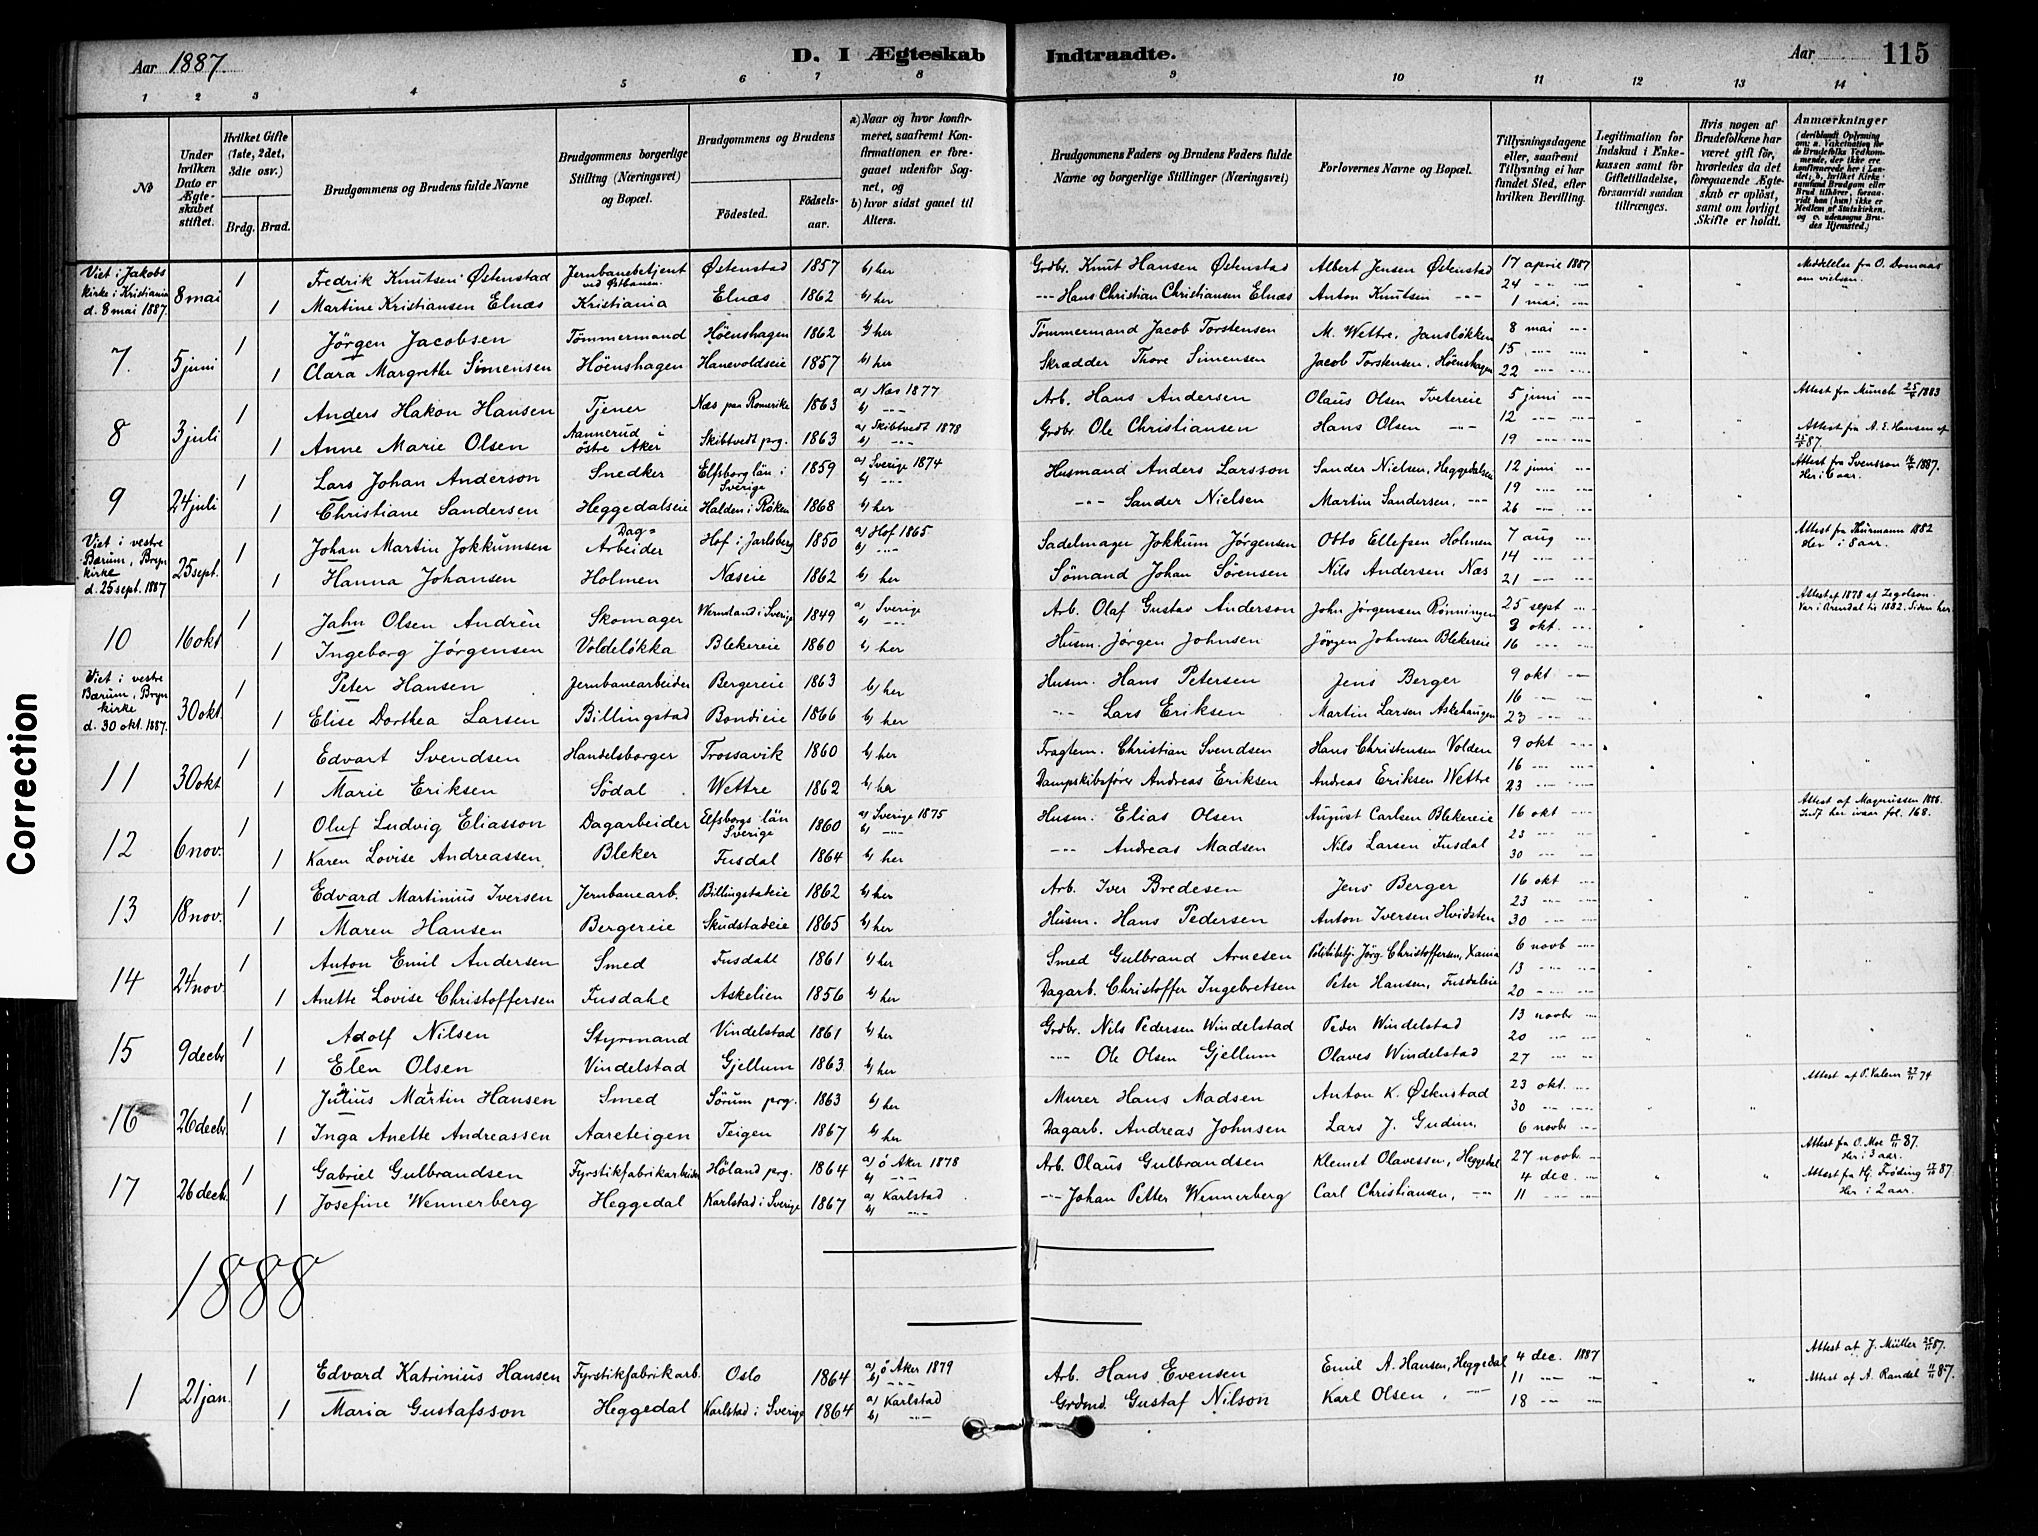 Correction
Aar 1887.
D. I Ægteskab Indtraadte.
Aar 115
1 2 3 4 5 6 7 8 9 10 11 12 13 14
No
Under hvilken Dato er Ægteskabet stiftet.
Hvilket Gifte (1ste, 2det, 3dte osv.)
Brdg. Brud.
Brudgommens og Brudens fulde Navne
Brudgommens borgerlige Stilling (Næringsvei) og Bopæl.
Brudgommens og Brudens
Fødested.
Fødsels-aar.
a) Naar og hvor konfirmeret, saafremt Konfirmationen er foregaaet udenfor Sognet, og
b) hvor sidst gaaet til Alters.
Brudgommens Faders og Brudens Faders fulde Navne og borgerlige Stillinger (Næringsvei)
Forlovernes Navne og Bopæl.
Tillysningsdagene eller, saafremt Tillysning ei har fundet Sted, efter hvilken Bevilling.
Legitimation for Indskud i Enkekassen samt for Giftetilladelse, forsaavidt saadan tiltrænges.
Hvis nogen af Brudefolkene har været gift før, hvorledes da det foregaaende Ægteskab er opløst, samt om lovligt Skifte er holdt.
Anmærkninger
(deriblandt Oplysning om: a. Vakcination for de Brudefolks Vedkommende, der ikke ere konfirmerede her i Landet; b, hvilket Kirkesamfund Brudgom eller Brud tilhører, forsaavidt han (hun) ikke er Medlem af Statskirken, og c. udensogns Brudes Hjemsted.)
Viet i Jakobs kirke i Kristiania d. 8 mai 1887. 8 mai 1 Fredrik Knutsen Østenstad Jernbanebetjent ved Østbanen Østenstad 1857 b) her Grdbr. Knut Hansen Østenstad Albert Jensen Østenstad 17 april 1887 Meddelelse fra O. Domaas om vielsen.
1 Martine Kristiansen Elnæs Kristiania Elnæs 1862 b) her --- Hans Christian Christiansen Elnæs Anton Knutsen --- 24 --- 1 mai ---
7. 5 juni 1 Jörgen Jacobsen Tømmermand Höenshagen 1862 b) her Tømmermand Jacob Torstensen M. Wettre, Jansløkken 8 mai ---
1 Clara Margrethe Simensen Höenshagen Hanevoldseie 1857 b) her Skrædder Thore Simensen Jacob Torstensen, Höenshagen 15 --- 22 ---
8 3 juli 1 Anders Hakon Hansen Tjener Næs paa Romerike 1863 a) Næs 1877 b) --- Arb. Hans Andersen Olaus Olsen Tvetereie 5 juni --- Attest fra Münch 25/5 1883
1 Anne Marie Olsen Nannerud i östre Aker Skibtvedt prg. 1863 a) Skibtvedt 1878 b) --- Grdbr. Ole Christiansen Hans Olsen --- 12 --- 19 --- Attest fra A. E. Hansen af 87.
9 24 juli 1 Lars Johan Anderson Snedker Elfsborg län i Sverige 1859 a) Sverige 1874 b) --- Husmand Anders Larsson Sander Nielsen, Heggedalseie 12 juni Attest fra Svensson 1887. Her i 6 aar.
1 Christiane Sandersen Heggedalseie Halden i Röken 1868 b) her --- Sander Nielsen Martin Sandersen, --- 19 --- 26 ---
Viet i vestre Bærum, Bryn kirke d. 25 sept. 1887 25 sept. 1 Johan Martin Jokkumsen Dag-Arbeider Hof i Jarlsberg 1850 a) Hof 1865 b) --- Sadelmager Jokkum Jørgensen Otto Ellefsen Holmen 7 aug --- Attest fra Thürmann 1882 Her i 8 aar.
1 Hanna Johansen Holmen Næseie 1862 b) her Sömand Johan Sörensen Nils Andersen Næs 14 --- 21 ---
10 16 okt 1 Jahn Olsen Andrèn Skomager Wermland i Sverige 1849 a) Sverige b) --- Arb. Olaf Gustav Anderson John Jørgensen Rønningen 25 sept --- Attest af 1878 af Zegolson. Var i Arendal til 1882. Siden her.
1 Ingeborg Jørgensen Voldeløkka Blekereie 1860 b) her Husm. Jørgen Johnsen Jørgen Johnsen Blekereie 3 okt. --- 16 ---
Viet i vestre Bærum, Bryn kirke d. 30 okt. 1887. 30 okt. 1 Peter Hansen Jernbanearbeider Bergereie 1863 b) her Husm. Hans Petersen Jens Berger 9 okt ---
1 Elise Dorthea Larsen Billingstad Bondieie 1866 b) her --- Lars Eriksen Martin Larsen Askehaugen 16 --- 23 ---
11 30 okt 1 Edvart Svendsen Handelsborger Trossavik 1860 b) her Fragtem. Christian Svendsen Hans Christensen Volden 9 okt ---
1 Marie Eriksen Södal Wettre 1862 b) her Dampskibsfører Andreas Eriksen Andreas Eriksen Wettre 16 --- 23 ---
12 6 nov. 1 Oluf Ludvig Eliasson Dagarbeider Elfsborgs län Sverige 1860 a) Sverige 1875 b) --- Husm. Elias Olsen August Carlsen Blekereie 16 okt --- Attest af Magnussen 1886. Indf her iaar fol. 168.
1 Karen Lovise Andreassen Bleker Fusdal 1864 b) her --- Andreas Madsen Nils Larsen Fusdal 23 --- 30 ---
13 18 nov. 1 Edvard Martinius Iversen Jernbanearb. Billingstadeie 1862 b) her Arb. Iver Bredesen Jens Berger 16 okt ---
1 Maren Hansen Bergereie Skudstadeie 1865 b) her Husm. Hans Pedersen Anton Iversen Hvidsten 23 --- 30 ---
14 24 nov. 1 Anton Emil Andersen Smed Fusdahl 1861 b) her Smed Gulbrand Arnesen Politibetj. Jörg. Christoffersen, Xania 6 novb ---
1 Anette Lovise Christoffersen Fusdahl Askelien 1856 b) her Dagarb. Christoffer Ingebretsen Peter Hansen, Fusdaleie 13 --- 20 ---
15 9 decbr 1 Adolf Nilsen Styrmand Vindelstad 1861 b) her Grdbr. Nils Pedersen Windelstad Peder Windelstad 13 novbr ---
1 Elen Olsen Vindelstad Gjellum 1863 b) her --- Ole Olsen Gjellum Olaves Windelstad 20 --- 27 ---
16 26 decbr. 1 Julius Martin Hansen Smed Sörum prg. 1863 b) her Murer Hans Madsen Anton K. Østenstad 23 okt. --- Attest af P. Valen 74
1 Inga Anette Andreassen Aareteigen Teigen 1867 b) her Dagarb. Andreas Johnsen Lars J. Gudim 30 --- 6 novbr ---
17 26 decb. 1 Gabriel Gulbrandsen Fyrstikfabrikarbeider Höland prg. 1864 a) ö Aker 1878 b) --- Arb. Olaus Gulbrandsen Klemet Olavessen, Heggedal 27 novbr --- Attest fra O. Moe 87. Her i 3 aar.
1 Josefine Wennerberg Heggedal Karlstad i Sverige 1867 a) Karlstad b) --- --- Johan Petter Wennerberg Carl Christiansen, --- 4 dec. --- 11 --- Attest fra Hj. Fröding 87 Her i 2 aar.
1888
1 21 jan. 1 Edvard Katrinius Hansen Fyrstikfabrikarb. Oslo 1864 a) ö Aker 1879 b) --- Arb. Hans Evensen Emil A. Hansen, Heggedal 4 dec. 1887 Attest af J. Müller 87.
1 Maria Gustafsson Heggedal Karlstad i Sverige 1864 a) Karlstad b) --- Grdmd. Gustaf Nilson Karl Olsen, --- 11 --- 18 --- Attest af A. Randel 87.